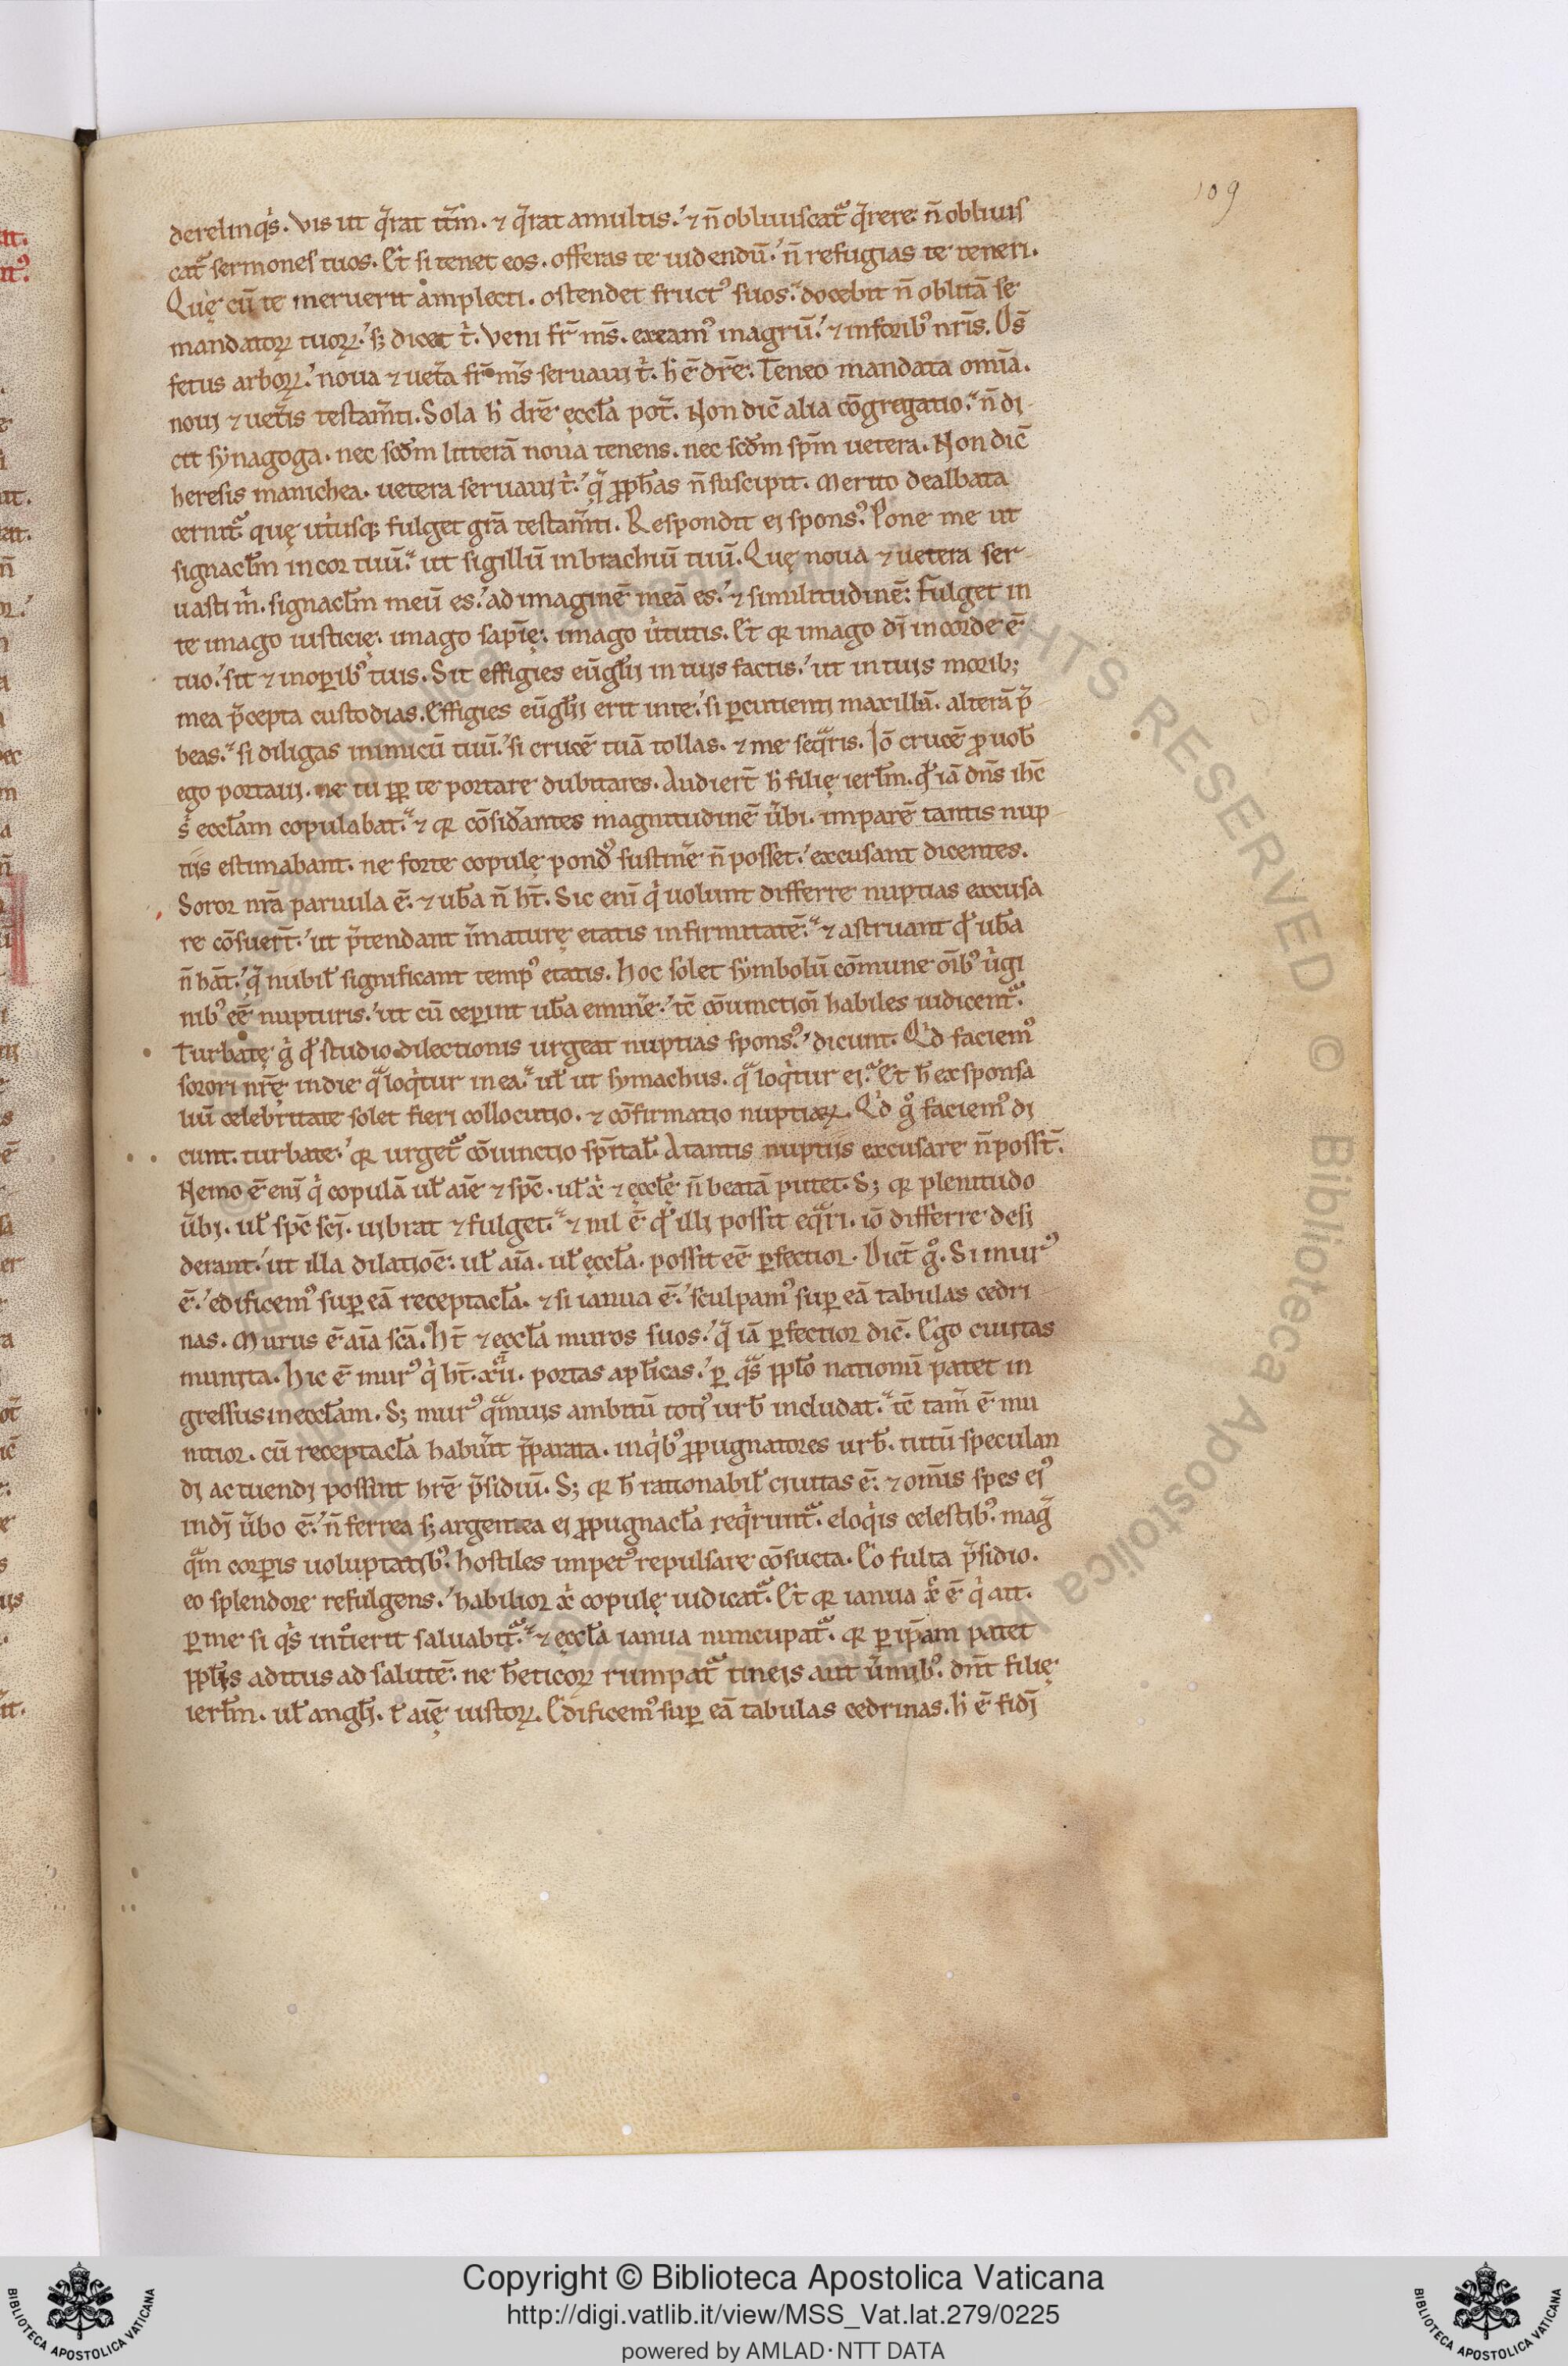 109
derelinqͥs. Vis ut q̄rat it̄m. ⁊ q̄rat a multis.ʼ ⁊ n̄ obliuiscat᷑ q̄rere n̄ obliuis
cat᷑ sermones tuos. Et si tenet eos. offeras te uidendū.ʼ n̄ refugias te teneri.
Quę cū te meruerit amplecti. ostendet fructꝰ suos.ʼ docebit n̄ oblitā se
mandatoꝝ tuoꝝ.ʼ sꝫ dicet tͥ. Veni fr̄ m̄s. exeamꝰ in agrū.ʼ ⁊ in foribꝰ nr̄is. Os̄
fetus arboꝝ.ʼ noua ⁊ uet̄a fr̄ m̄s seruauj tͥ. h̄ ē dr̄e. Teneo mandata omīa.
nouj ⁊ uet̄is testam̄ti. Sola h̄ dr̄e ęccl̄a pot̄. Non dic̄ alia cōgregatio.ʼ n̄ di
cit synagoga. nec scđm litterā noua tenens. nec scđm sp̄m uetera. Non dic̄
heresis manichea. uetera seruauj tͥ.ʼ q̄ ꝓph̄as n̄ suscipit. Merito dealbata
cernit᷑ quę utͥusqꝫ fulget gr̄a testam̄ti. Respondit ej sponsꝰ. Pone me ut
signacl̄m in cor tuū.ʼ ut sigillū in brachiū tuū. Quę noua ⁊ uetera ser
uasti mͥ. signacl̄m meū es.ʼ ad imaginē meā es.ʼ ⁊ similitudinē. Fulget in
te imago iusticię. imago sapīę. imago uͥtutis. Et qꝛ imago dj̄ in corde ē
tuo.ʼ sit ⁊ in oꝑibꝰ tuis. Sit effigies eūgl̄ij in tuis factis.ʼ ut in tuis moribꝫ
mea p̄cepta custodias. Effigies eūgl̄ij erit in te.ʼ si ꝑcutientj maxillā. alterā p̄
beas.ʼ si diligas inimicū tuū.ʼ si crucē tuā tollas. ⁊ me seq̄ris. Iō crucē ꝓ uob̄
ego portauj. ne tu ꝓꝑ te portare dubitares. Audiert̄ h̄ filię ierl̄m. qđ iā dn̄s ih̄c
sͥ eccl̄am copulabat.ʼ ⁊ qꝛ cōsid̄antes magnitudinē ūbi. imparē tantis nup
tijs estimabant. ne forte copulę pondꝰ sustin̄e n̄ posset.ʼ excusant dicentes.
Soror nr̄a paruula ē. ⁊ ub̄a n̄ ht̄. Sic enī qͥ uolunt differre nuptias excusa
re cōsuert̄.ʼ ut p̄tendant īmaturę etatis infirmitatē.ʼ ⁊ astruant qđ ub̄a
n̄ hāt.ʼ q̄ nubil̄ significant tempꝰ etatis. Hoc solet symbolū cōmune oīb uͥgi
nibꝰ eē nupturis.ʼ ut cū ceperint ub̄a emin̄e.ʼ tc̄ cōiunctionj habiles iudicent᷑.
Turbatę gͥ qđ studio dilectionis urgeat nuptias sponsꝰ.ʼ dicunt. Qͥd faciemꝰ
sorori nr̄ę in die q̄ loqͥtur in ea.ʼ ul̄ ut symachus. q̄ loqͥtur ei.ʼ Et h̄ ex sponsa
liū celebritate solet fieri collocutio. ⁊ cōfirmatio nuptiaꝝ. Qͥd gͦ faciemꝰ dj
cunt. turbate.ʼ qꝛ urget᷑ cōiunctio spr̄ital̄. A tantis nuptijs excusare n̄ posst̄.
Nemo ē enī qͥ copulā ul̄ aīe ⁊ sp̄c. ul̄ xͥ ⁊ ęccl̄ę n̄ beatā putet. Sꝫ qꝛ plenitudo
ūbi. ul̄ sp̄c scī. uibrat ⁊ fulget.ʼ ⁊ nil ē qđ illi possit eq̄ri. iō differre desj
derant.ʼ ut illa dilatiōe. ul̄ aīa. ul̄ ęccl̄a. possit eē ꝑfectior. Dict̄ gͦ. Si murꝰ
ē.ʼ edificemꝰ suꝑ eā receptacl̄a. ⁊ si ianua ē.ʼ sculpamꝰ suꝑ eā tabulas cedri
nas. Murus ē aīa sc̄a. Ht̄ ⁊ ęccl̄a muros suos.ʼ q̄ iā ꝑfectior dic̄. Ego ciuitas
munita. Hic ē murꝰ qͥ ht̄. xii. portas apl̄icas.ʼ ꝑ qͣs ppl̄o nationū patet in
gressus in eccl̄am. Sꝫ murꝰ qͣmuis ambitū totiꝰ urb̄ includat.ʼ tc̄ tam̄ ē mu
nitior. cū receptacl̄a habu̾it p̄parata. in qͥbꝰ ꝓpugnatores urb̄. tutū speculan
dj ac tuendj possint hr̄e p̄sidiū. Sꝫ qꝛ h̄ rationabil̄ ciuitas ē. ⁊ omīs spes ejꝰ
in dj̄ ūbo ē.ʼ n̄ ferrea sꝫ argentea ei ꝓpugnacl̄a reqͥrunt᷑. eloqͥis celestibꝰ. maḡ
qͣm corꝑis uoluptatibꝰ. hostiles impetꝰ repulsare cōsueta. Eo fulta p̄sidio.
eo splendore refulgens.ʼ habilior xͥ copulę iudicat᷑. Et qꝛ ianua xͨ ē qͥ ait.
ꝑ me si qͥs introierit saluabit᷑.ʼ ⁊ ęccl̄a ianua nuncupat᷑. qꝛ ꝑ ip̄am patet
ppl̄is aditus ad salutē. ne h̄eticoꝝ rumpat᷑ tineis aut ūmibꝰ. dn̄t filię
ierl̄m. ul̄ angl̄j. l̄ aīę iustoꝝ. Edificemꝰ suꝑ eā tabulas cedrinas. h̄ ē fidj
Copyright © Biblioteca Apostolica Vaticana
http://digi.vatlib.it/view/MSS_Vat.lat.279/0225
powered by AMLAD·NTT DATA
BIBLIOTECA APOSTOLICA VATICANA
BIBLIOTECA APOSTOLICA VATICANA